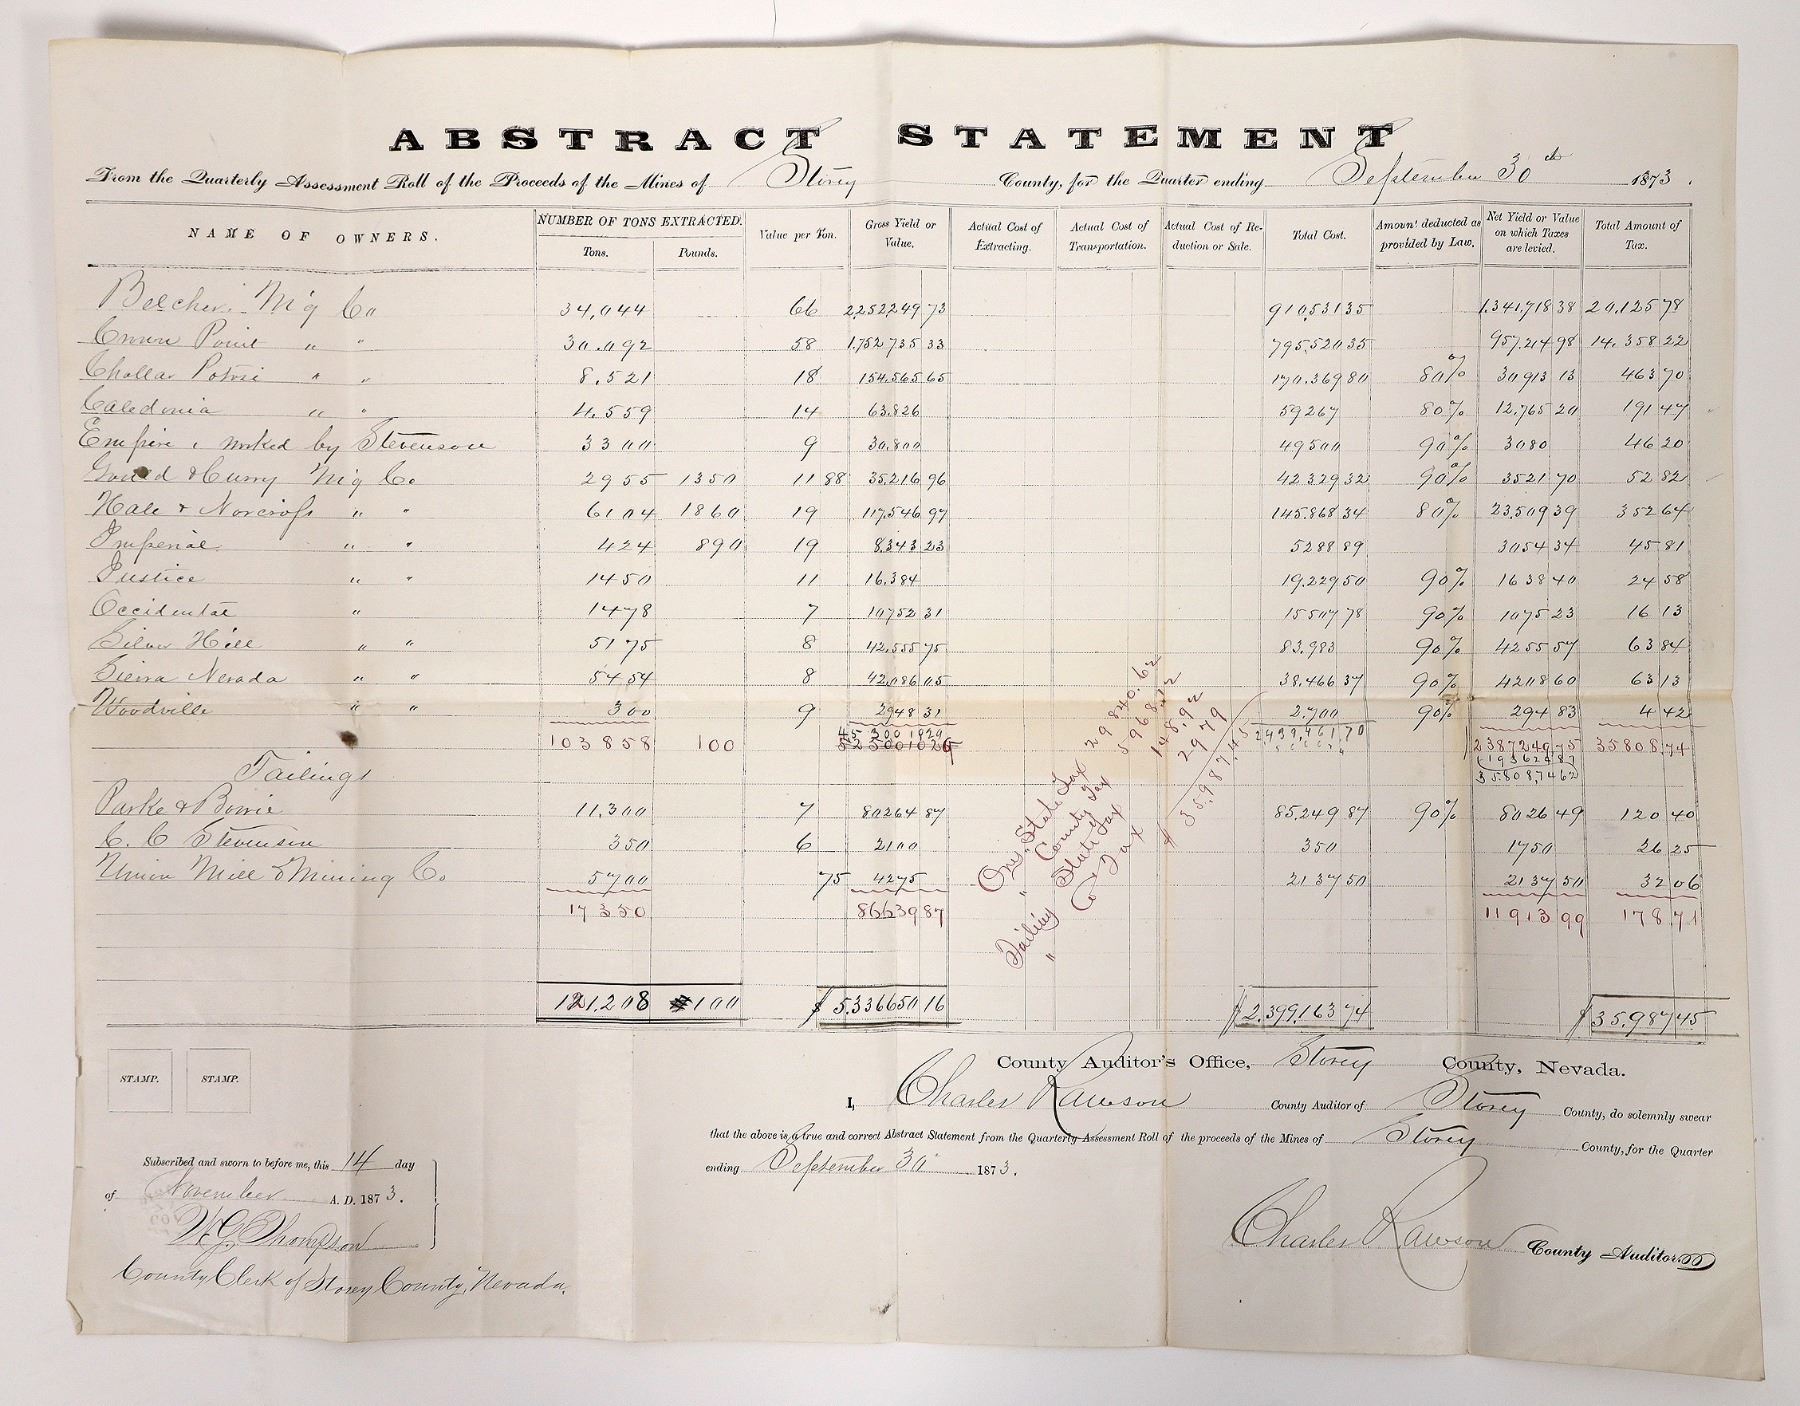 ABSTRACT STATEMENT
From the Quarterly Assessment Roll of the Proceeds of the Mines of Storey County, for the Quarter ending September 30th 1873.
NAME OF OWNERS. NUMBER OF TONS EXTRACTED. Tons. Pounds. Value per Ton. Gross Yield or Value. Actual Cost of Extracting. Actual Cost of Transportation. Actual Cost of Reduction or Sale. Total Cost. Amount deducted as provided by Law. Net Yield or Value on which Taxes are levied. Total Amount of Tax.
Belcher M'g Co 34,044 66 2252249 73 910531 35 1.341,718 38 20,125 78
Crown Point " " 30.092 58 1.752 735 33 795.520 35 957.214 98 14.358 22
Chollar Potosi " " 8.521 18 154.565 65 170.369 80 80% 30913 13 463 70
Caledonia " " 4.559 14 63.826 59267 80% 12,765 20 191 47
Empire, worked by Stevenson 3300 9 30.800 49500 90% 3080 46 20
Gould & Curry M'g Co. 2955 1350 11 88 35.216 96 42329 32 90% 3521 70 52 82
Hale & Norcross " " 6104 1860 19 117.546 97 145.868 34 80% 23.509 39 352 64
Imperial " " 424 890 19 8.343 23 5288 89 3054 34 45 81
Justice " " 1450 11 16.384 19,229 50 90% 1638 40 24 58
Occidental " 1478 7 10752 31 15507 78 90% 1075 23 16 13
Silver Hill " " 5175 8 42,555 75 83.983 90% 4255 57 63 84
Sierra Nevada " " 5454 8 42,086 05 38.466 37 90% 4208 60 63 13
Woodville " " 300 9 2948 31 2.700 90% 294 83 4 42
103858 100 2387249,75 35808.74
Tailings
Parke & Bowie 11,300 7 80264 87 85.249 87 90% 8026 49 120 40
C. C Stevenson 350 6 2100 350 1750 26 25
Union Mill & Mining Co. 5700 75 4275 2137 50 2137 50 32 06
17350 86639 87 11913 99 178.71
Ore, State Tax 29840.62
" County Tax 5968.12
Tailing State Tax 148.92
" Co Tax 29 79
$ 35.987.45
121,208 100 $5.336650 16 $2.399,163 74 $35.987 45
STAMP. STAMP.
County Auditor's Office, Storey County, Nevada.
I, Charles Rawson County Auditor of Storey County, do solemnly swear
that the above is a true and correct Abstract Statement from the Quarterly Assessment Roll of the proceeds of the Mines of Storey County, for the Quarter
ending September 30 1873.
Subscribed and sworn to before me, this 14 day
of November A. D. 1873.
W G. Thompson
County Clerk of Storey County, Nevada.
Charles Rawson County Auditor.